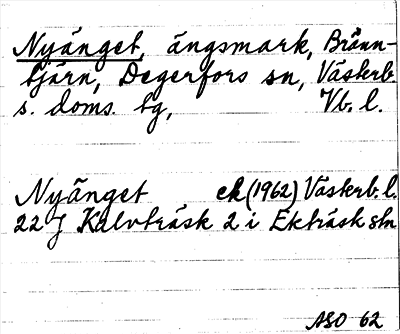 Nyänget, ängsmark, Bränn-
tjärn, Degerfors sn, Västerb.
s. doms. tg, Vb. l.
Nyänget ek (1962) Västerb. l.
22 J Kalvträsk 2 i Ekträsk stn
ASO 62